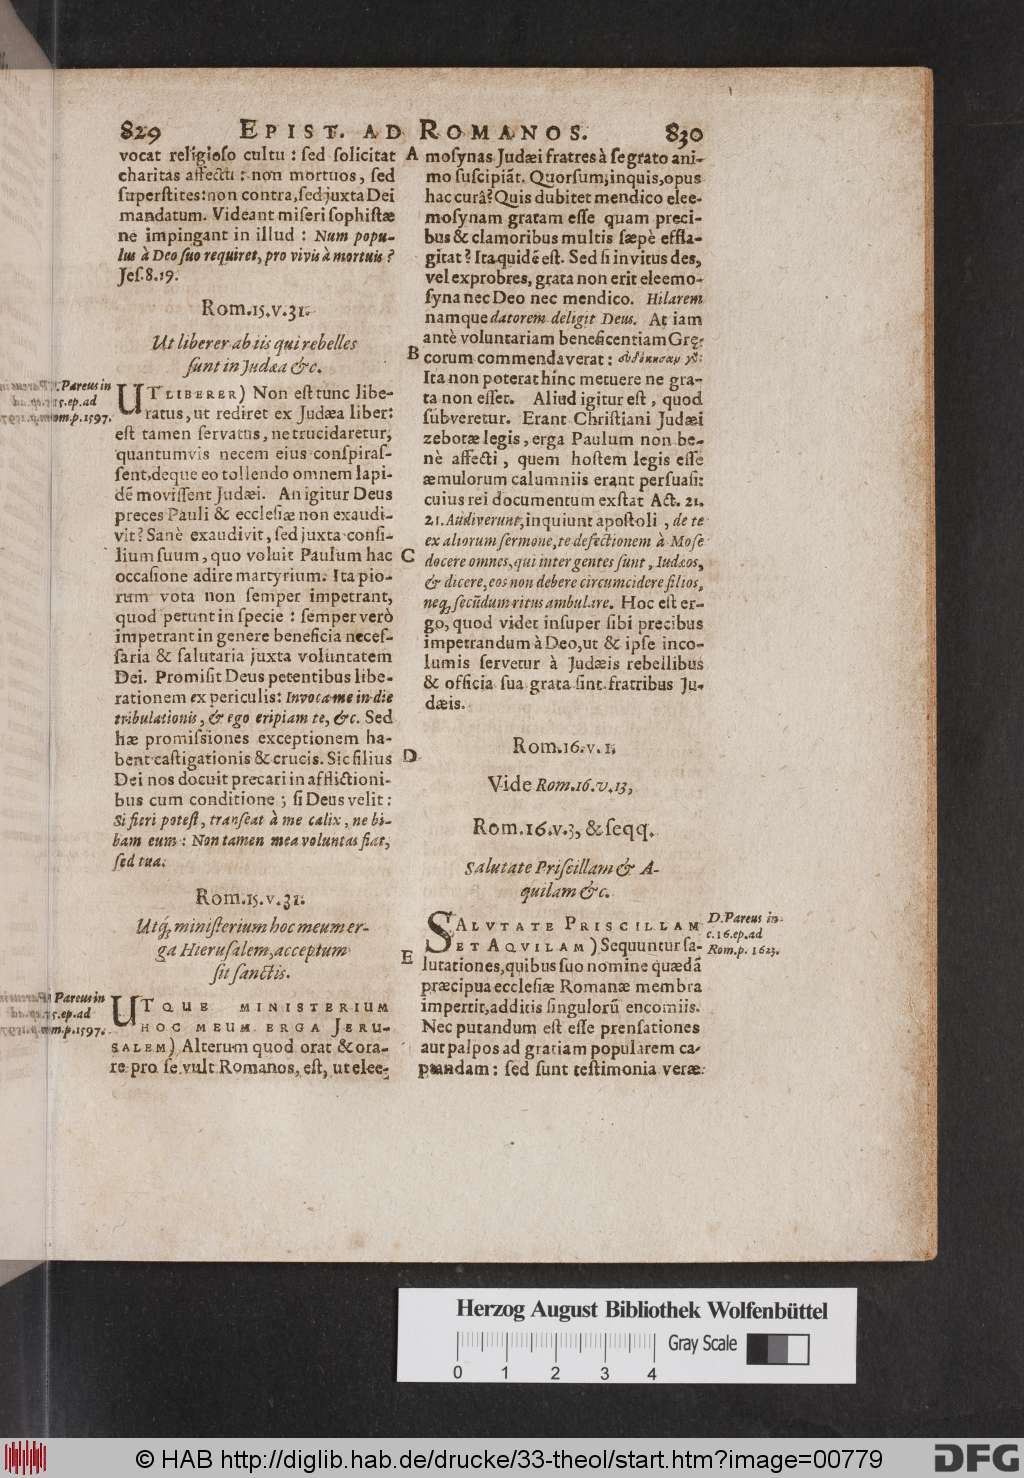 829 EPIST. AD ROMANOS. 830
vocat religioso cultu : sed solicitat
charitas affectu : non mortuos, sed
superstites: non contra, sed juxta Dei
mandatum. Videant miseri sophistæ
ne impingant in illud : Num popu-
lus à Deo suo requiret, pro vivis à mortuis ?
Jes. 8. 19.
Rom. 15. v. 31.
Ut liberer ab iis qui rebelles
sunt in Judæa &c.
D. Pareus in
c. 15. ep. ad
Rom. p. 1597.
UT LIBERER) Non est tunc libe-
ratus, ut rediret ex Judæa liber:
est tamen servatus, ne trucidaretur,
quantumvis necem eius conspiras-
sent, deque eo tollendo omnem lapi-
dē movissent Judæi. An igitur Deus
preces Pauli & ecclesiæ non exaudi-
vit? Sanè exaudivit, sed juxta consi-
lium suum, quo voluit Paulum hac
occasione adire martyrium. Ita pio-
rum vota non semper impetrant,
quod petunt in specie : semper verò
impetrant in genere beneficia neces-
saria & salutaria juxta voluntatem
Dei. Promisit Deus petentibus libe-
rationem ex periculis: Invoca me in die
tribulationis, & ego eripiam te, &c. Sed
hæ promissiones exceptionem ha-
bent castigationis & crucis. Sic filius
Dei nos docuit precari in afflictioni-
bus cum conditione ; si Deus velit :
Si fieri potest, transeat à me calix, ne bi-
bam eum : Non tamen mea voluntas fiat,
sed tua.
Rom. 15. v. 31.
Utq́; ministerium hoc meum er-
ga Hierusalem, acceptum
sit sanctis.
D. Pareus in
c. 15. ep. ad
Rom. p. 1597.
UTQUE MINISTERIUM
HOC MEUM ERGA JERU-
SALEM) Alterum quod orat & ora-
re pro se vult Romanos, est, ut elee-
A
B
C
D
E
mosynas Judæi fratres à se grato ani-
mo suscipiāt. Quorsum, inquis, opus
hac curâ? Quis dubitet mendico elee-
mosynam gratam esse quam preci-
bus & clamoribus multis sæpè effla-
gitat ? Ita quidē est. Sed si invitus des,
vel exprobres, grata non erit eleemo-
syna nec Deo nec mendico. Hilarem
namque datorem deligit Deus. At iam
antè voluntariam beneficentiam Grę-
corum commendaverat : εὐδόκησαν γὰρ:
Ita non poterat hinc metuere ne gra-
ta non esset. Aliud igitur est, quod
subveretur. Erant Christiani Judæi
zebotæ legis, erga Paulum non be-
nè affecti, quem hostem legis esse
æmulorum calumniis erant persuasi:
cuius rei documentum exstat Act. 21.
21. Audiverunt, inquiunt apostoli, de te
ex aliorum sermone, te defectionem à Mose
docere omnes, qui inter gentes sunt, Iudæos,
& dicere, eos non debere circumcidere filios,
neq; secūdum ritus ambulare. Hoc est er-
go, quod videt insuper sibi precibus
impetrandum à Deo, ut & ipse inco-
lumis servetur à Judæis rebellibus
& officia sua grata sint fratribus Ju-
dæis.
Rom. 16. v. 1.
Vide Rom. 16. v. 13,
Rom. 16. v. 3, & seqq.
Salutate Priscillam & A-
quilam &c.
SALVTATE PRISCILLAM
ET AQVILAM) Sequuntur sa-
lutationes, quibus suo nomine quædā
præcipua ecclesiæ Romanæ membra
impertit, additis singulorū encomiis.
Nec putandum est esse prensationes
aut palpos ad gratiam popularem ca-
ptandam : sed sunt testimonia veræ
D. Pareus in
c. 16. ep. ad
Rom. p. 1623.
Herzog August Bibliothek Wolfenbüttel
Gray Scale
0 1 2 3 4
© HAB http://diglib.hab.de/drucke/33-theol/start.htm?image=00779
DFG